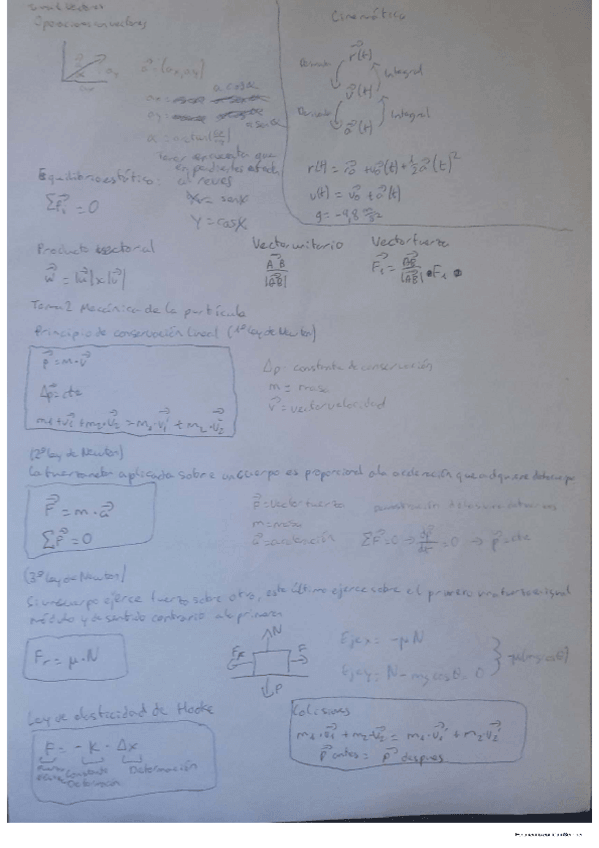 Tema 1 Vectores
Operaciones en vectores
a⃗ = (ax, ay)
a cos α
ax =
ay =
a sen α
α = arctan |ay/ax|
Tener en cuenta que
al revés
X = senX
Y = cosX
Equilibrio estático:
ΣF⃗ = 0
Cinemática
r⃗(t)
Derivada
Integral
v⃗(t)
Derivada
Integral
a⃗(t)
r(t) = r⃗0 + v⃗0(t) + ½ a⃗(t)²
v(t) = v⃗0 + a⃗(t)
g = -9,8 m/s²
Producto vectorial
w⃗ = |u⃗| x |v⃗|
Vector unitario
AB⃗/|AB⃗|
Vector fuerza
F⃗1 = AB⃗/|AB⃗| · F1
Tema 2 Mecánica de la partícula
Principio de conservación lineal (1ª ley de Newton)
p⃗ = m · v⃗
Δp⃗ = cte
m1 + v⃗1 + m2 · v⃗2 = m1 · v⃗1' + m2 · v⃗2'
Δp: constante de conservación
m = masa
v⃗ = vector velocidad
(2ª ley de Newton)
La fuerza neta aplicada sobre un cuerpo es proporcional a la aceleración que adquiere dicho cuerpo
F⃗ = m · a⃗
ΣF⃗ = 0
F⃗ = vector fuerza
m = masa
a⃗ = aceleración
ΣF⃗ = 0 → dp⃗/dt = 0 → p⃗ = cte
(3ª ley de Newton)
Si un cuerpo ejerce fuerza sobre otro, este último ejerce sobre el primero una fuerza igual
módulo y de sentido contrario a la primera
Fr = μ · N
N
FR
F
P
Eje x = -μN
Eje y = N - mg cosθ = 0
μ(mg cosθ)
Ley de elasticidad de Hooke
F = -K · Δx
Constante
Deformación
Colisiones
m1 · v⃗1 + m2 · v⃗2 = m1 · v⃗1' + m2 v⃗2'
P⃗ antes = P⃗ después